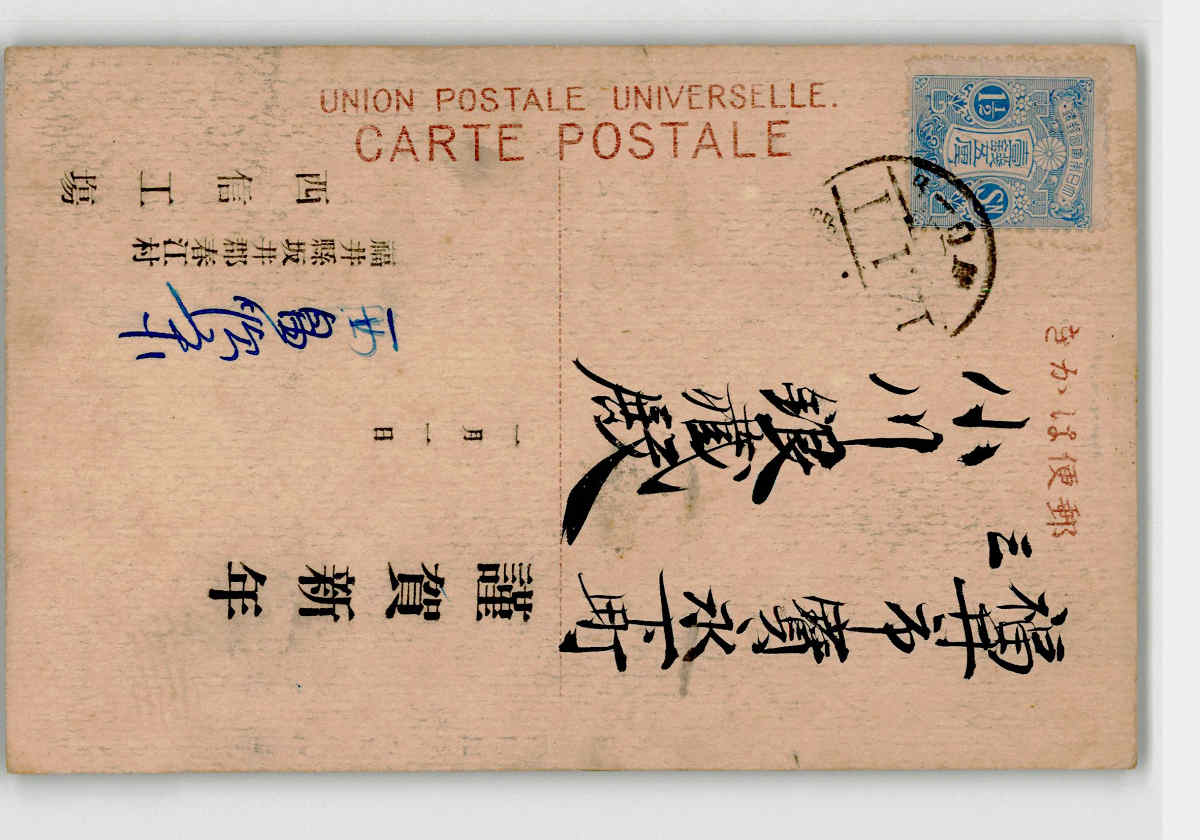 UNION POSTALE UNIVERSELLE.
CARTE POSTALE
きかは便郵
1½
壹錢五厘
SN
福井市寶永下町
小川銀藏殿
謹賀新年
一月一日
福井縣坂井郡春江村
西信工場